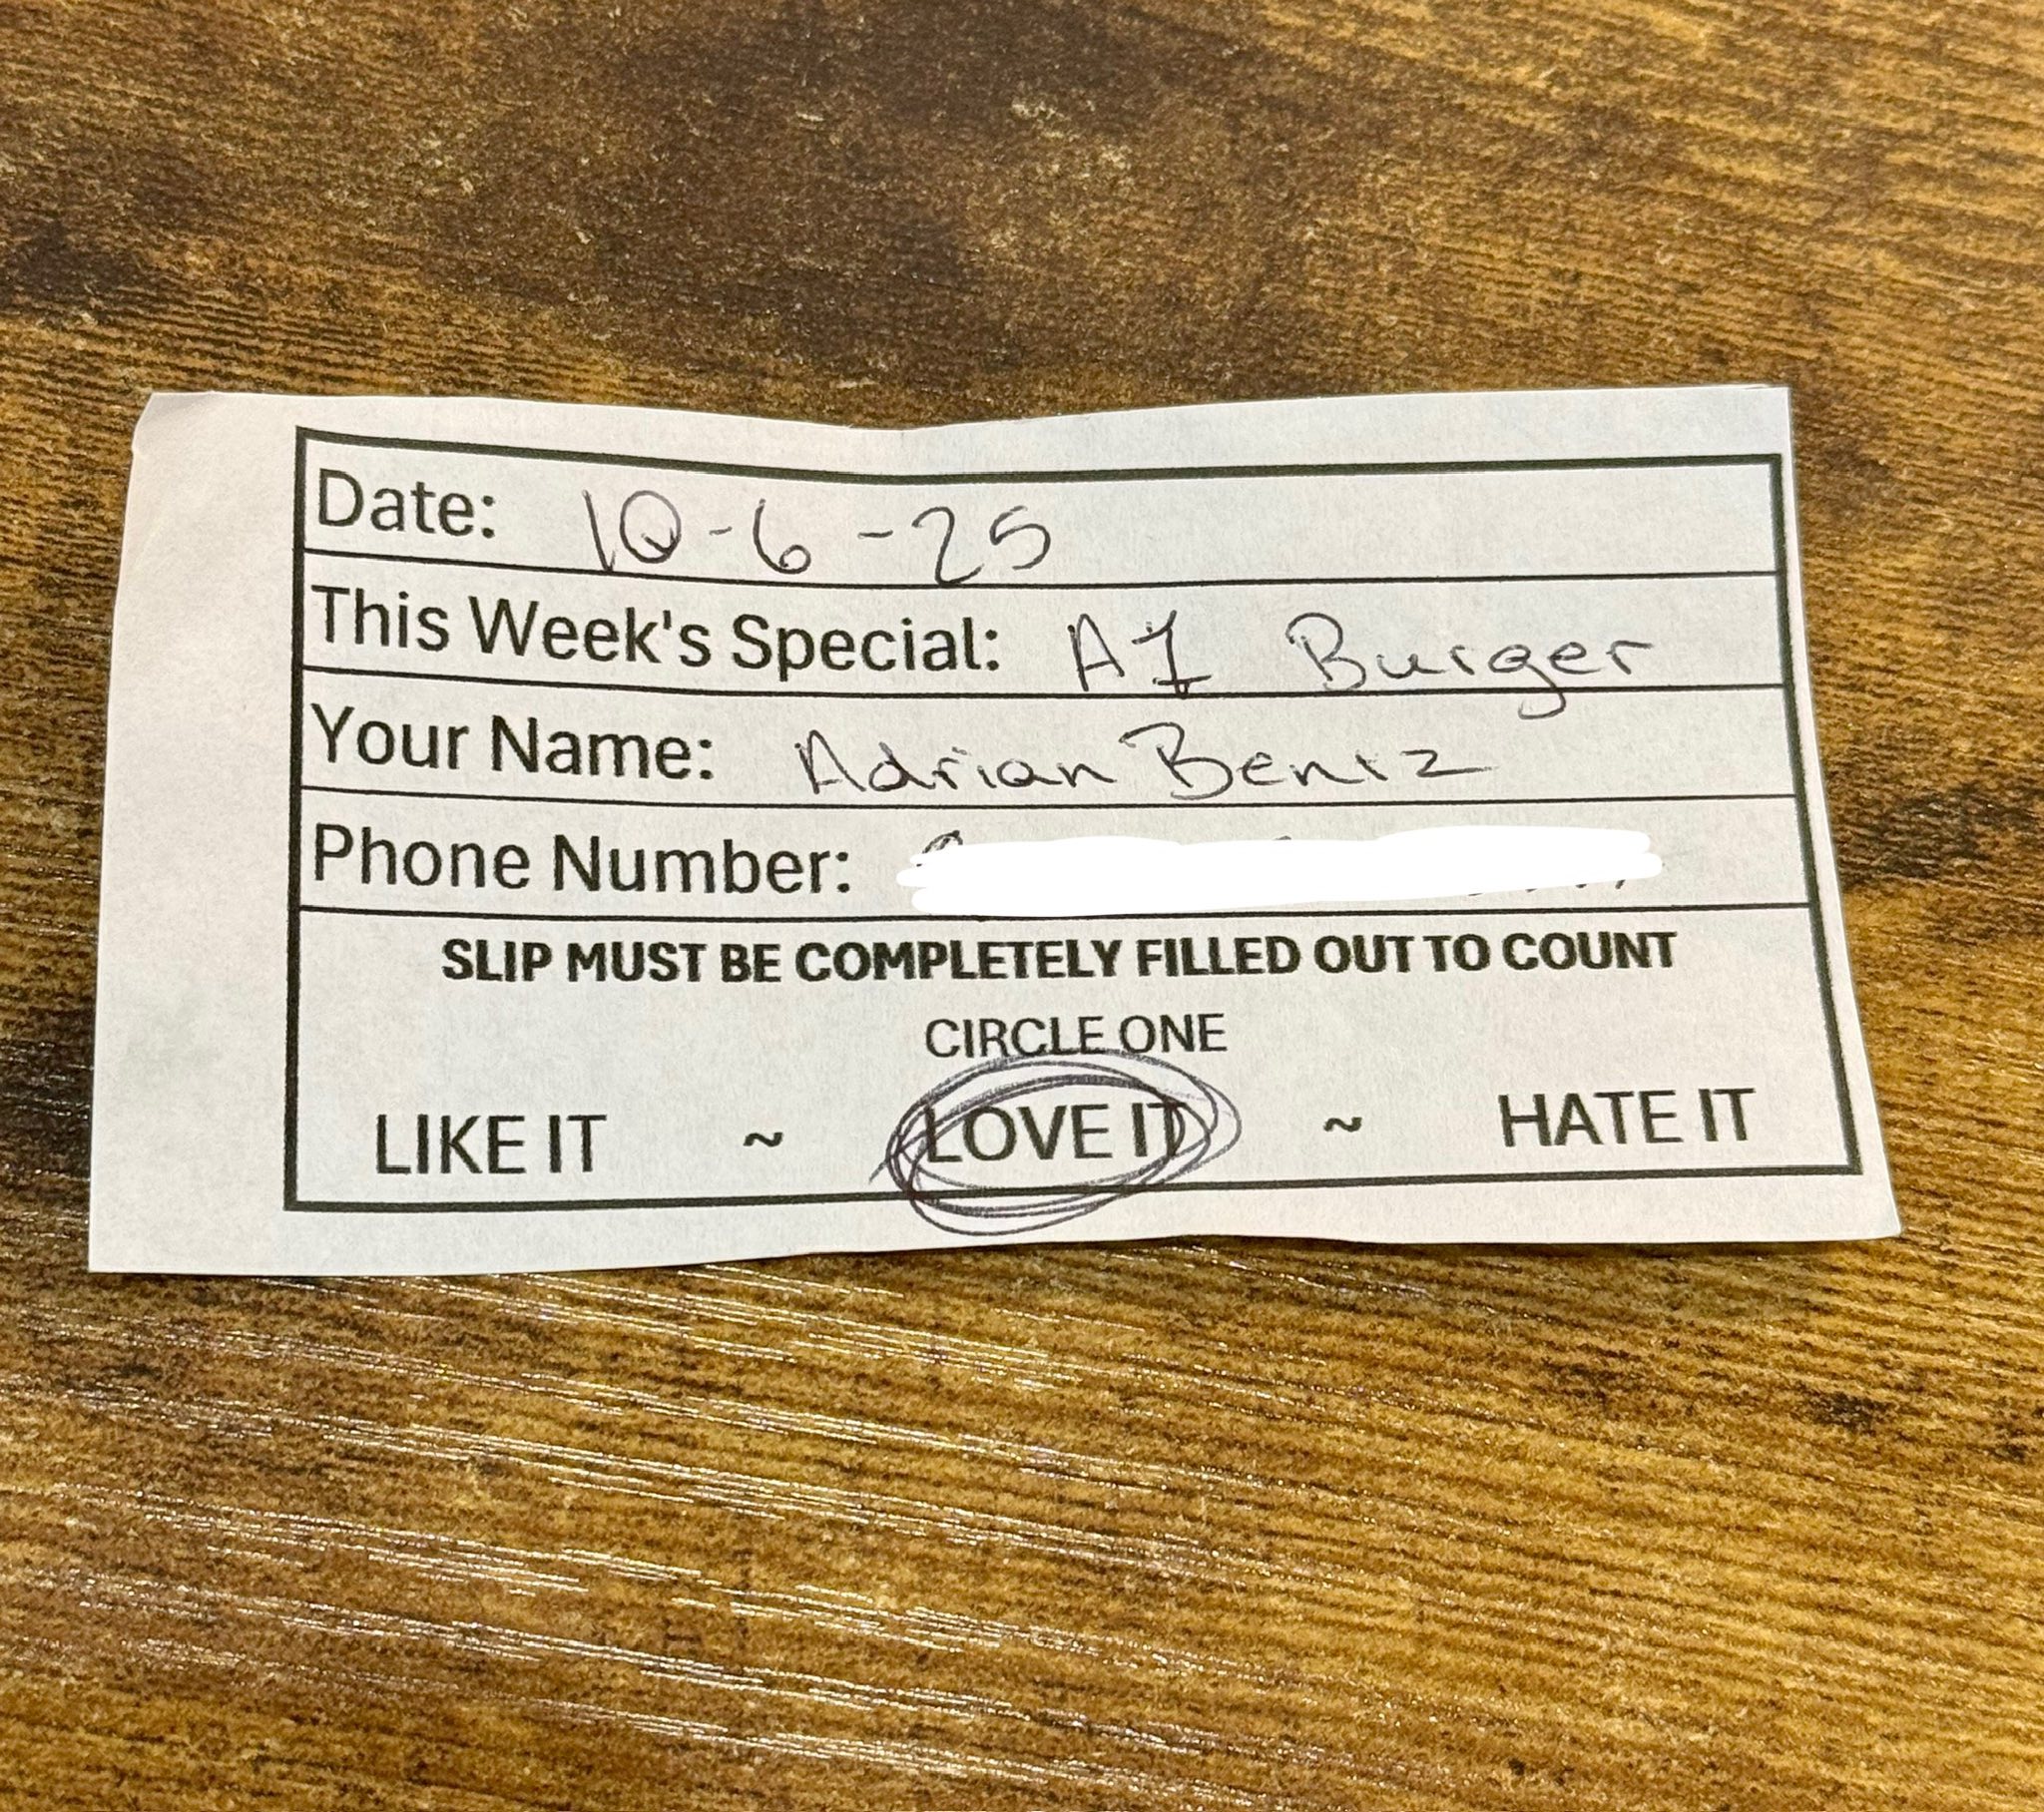 Date: 10-6-25
This Week's Special: A1 Burger
Your Name: Adrian Beniz
Phone Number:
SLIP MUST BE COMPLETELY FILLED OUT TO COUNT
CIRCLE ONE
LIKE IT ~ LOVE IT ~ HATE IT